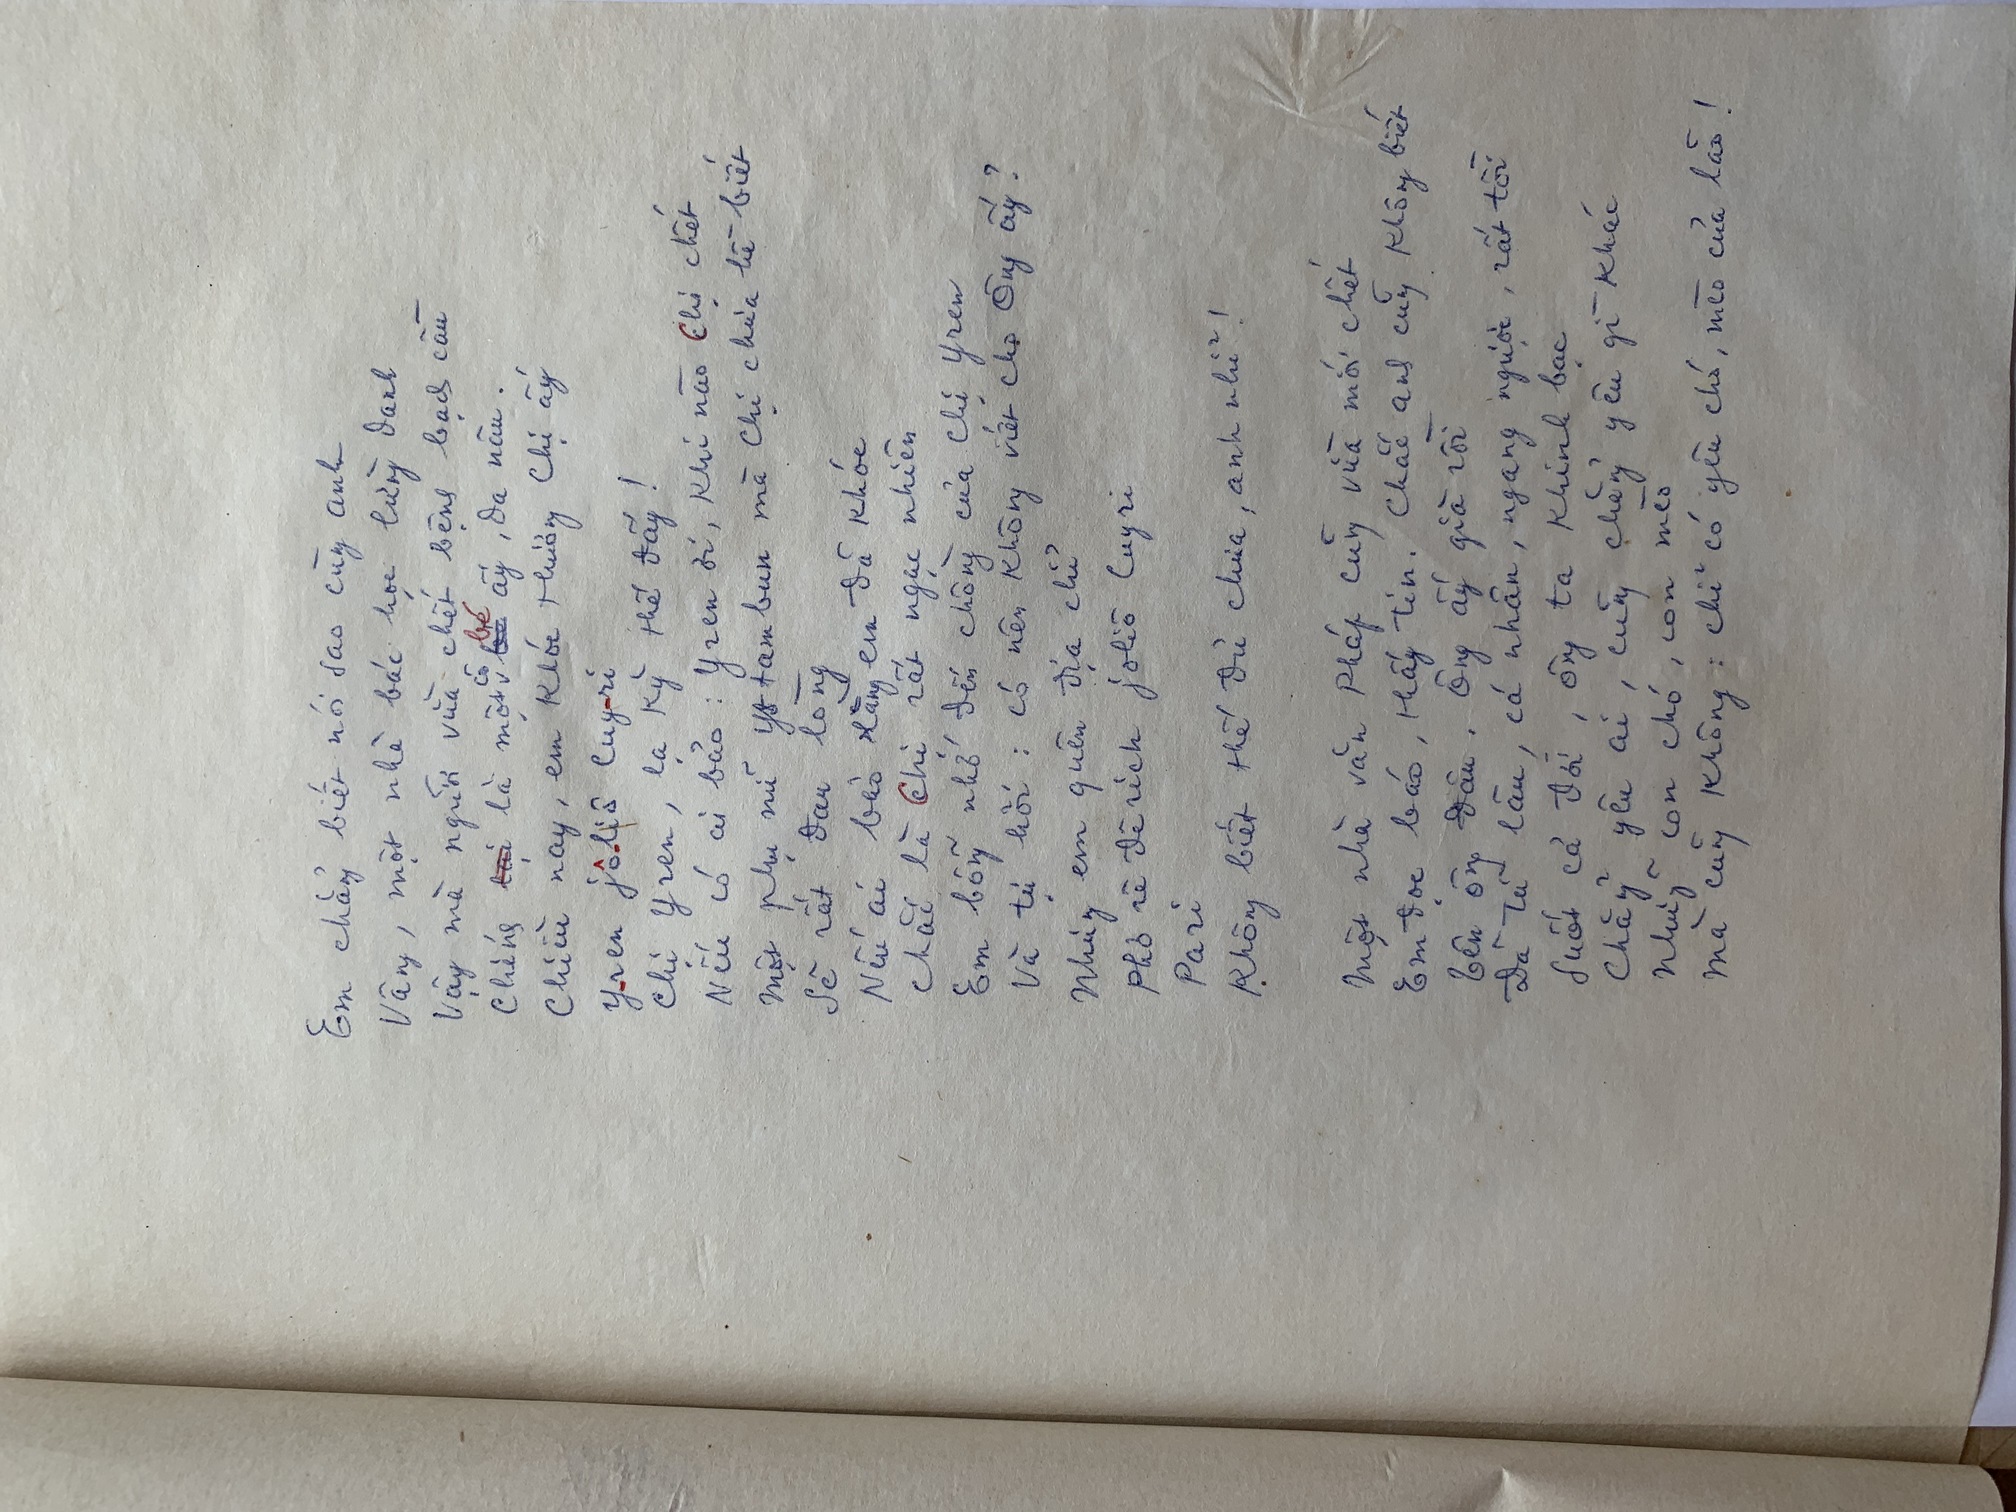 Em chẳng biết nói sao cùng anh
Vâng, một nhà bác học lừng danh
Vậy mà người vừa chết bệnh bạch cầu
Chính là một cô bé ấy, da nâu.
Chiều nay, em khóc thương chị ấy
Yren jôliô Cuyri
Chị Yren, lạ kỳ thế đấy!
Nếu có ai bảo: Yren ơi, khi nào Chị chết
một phụ nữ Ystambun mà chị chưa hề biết
Sẽ rất đau lòng
Nếu ai bảo rằng em đã khóc
chắc là Chị rất ngạc nhiên
Em bỗng nhớ đến chồng của chị Yren
Và tự hỏi: có nên không viết cho Ông ấy?
Nhưng em quên địa chỉ
Phơ rê đê rích jôliô Cuyri
Pari
Không biết thế đủ chưa, anh nhỉ!
một nhà văn Pháp cũng vừa mới chết
Em đọc báo, thấy tin. Chắc anh cũng không biết
tên ông đâu. Ông ấy già rồi
Đã từ lâu, cá nhân, ngang ngược, rất tồi
Suốt cả đời, ông ta khinh bạc
Chẳng yêu ai, cũng chẳng yêu gì khác
Những con chó, con mèo
mà cũng không: chỉ có yêu chó, mèo của lão!